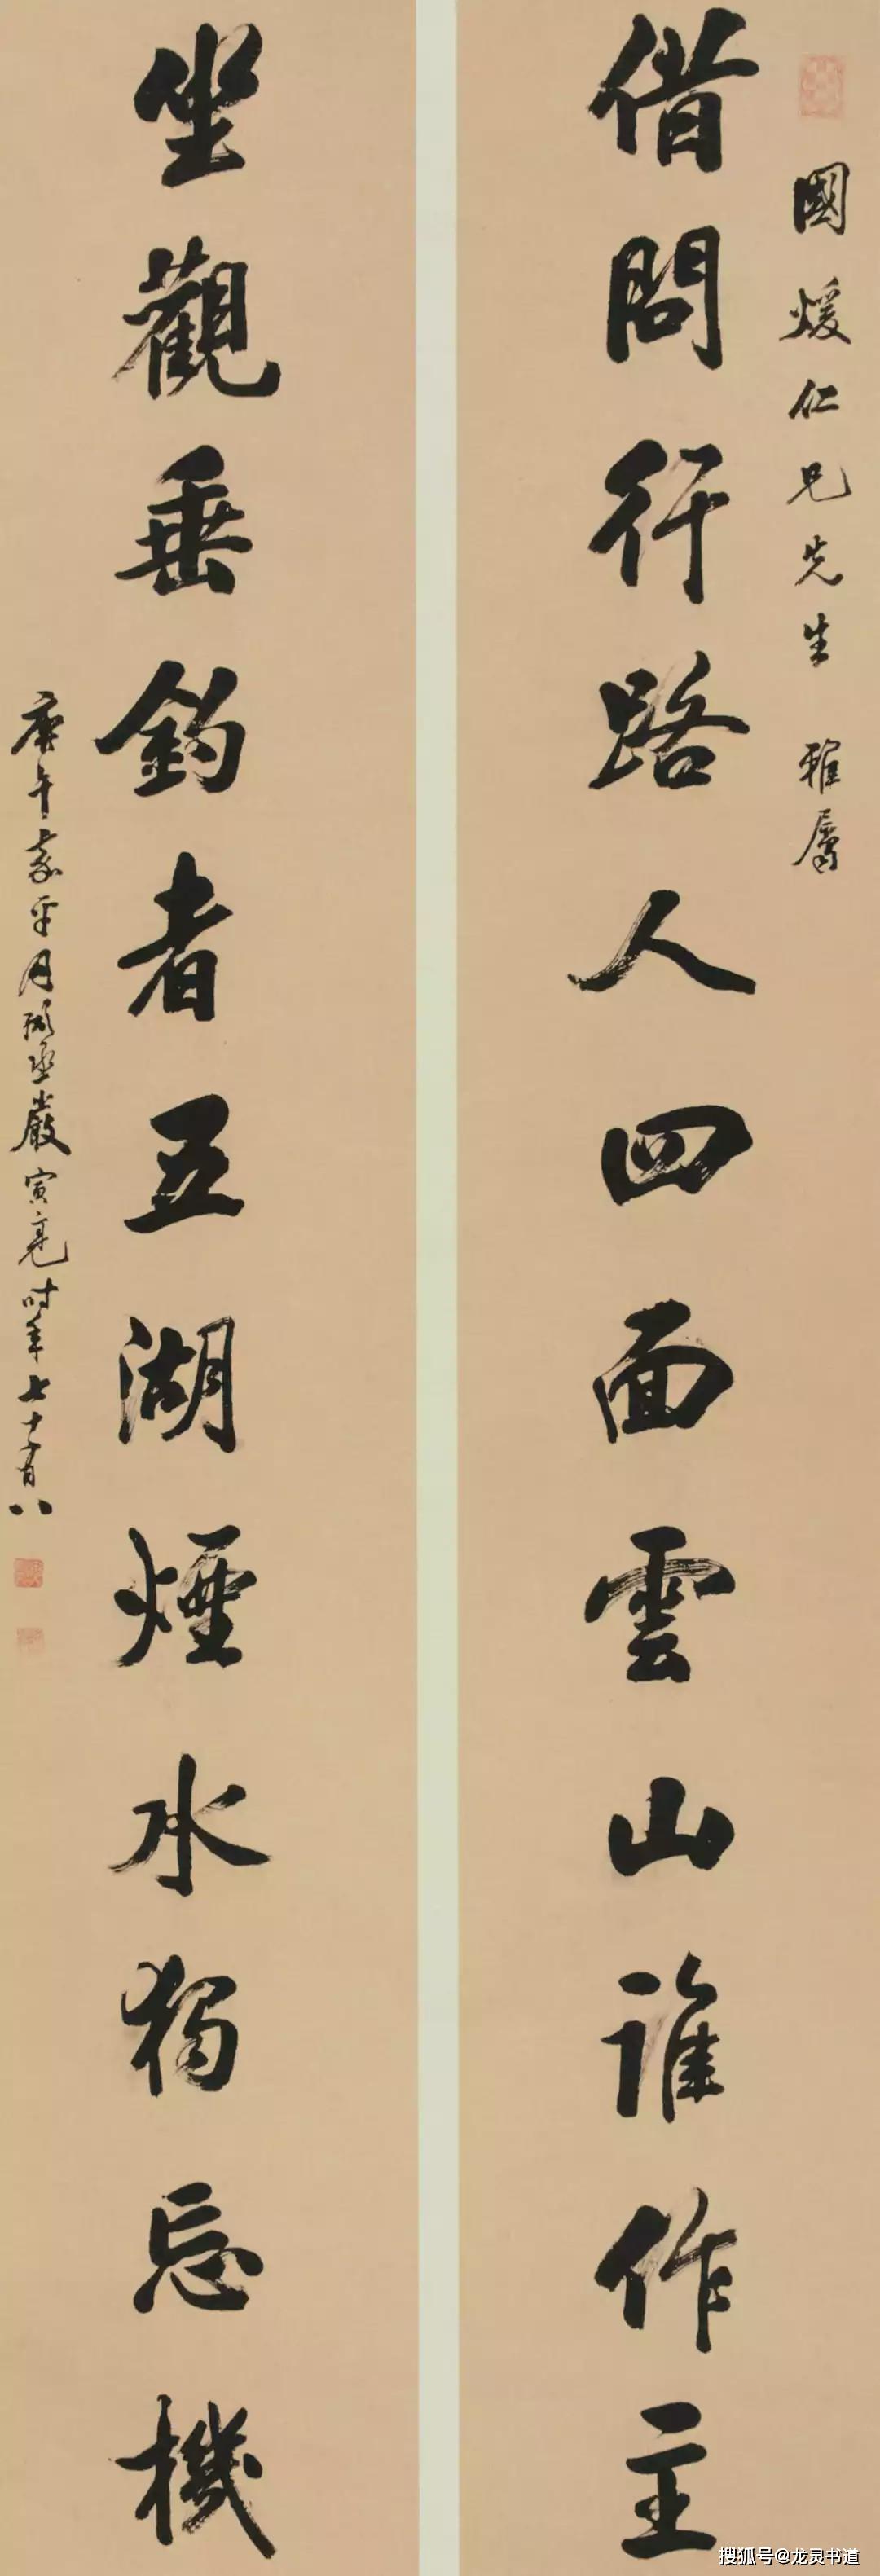 國煖仁兄先生 雅屬
借問行路人四面雲山誰作主
坐觀垂釣者五湖煙水獨忘機
庚午嘉平月 嚴寅亮時年七十有八
搜狐号@龙灵书道